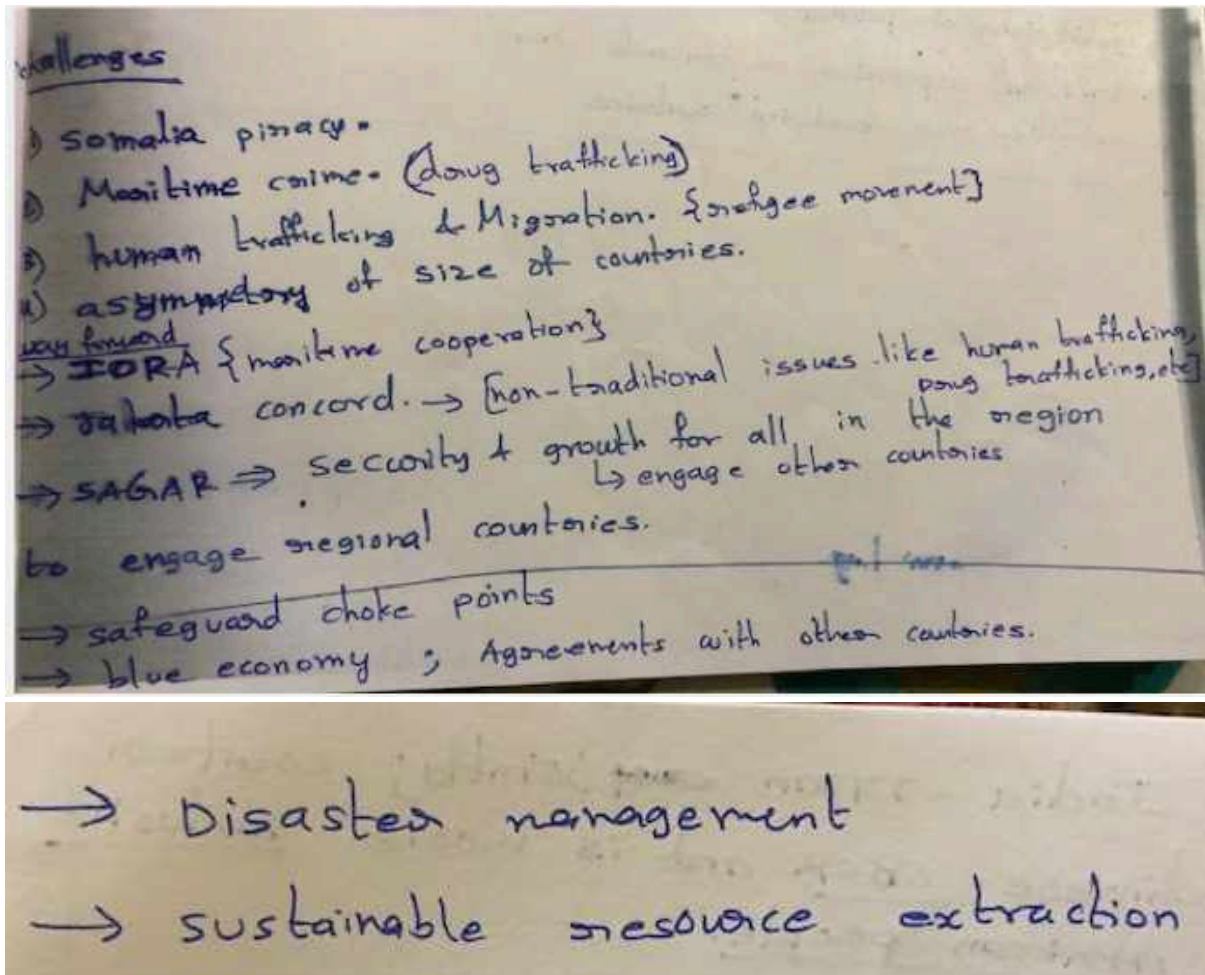 challenges
1) somalia piracy.
2) Maritime crime. (drug trafficking)
3) human trafficking & Migration. {refugee movement}
4) asymmetory of size of countries.
way forward
→ IORA {maritime cooperation}
→ concord. → [non-traditional issues like human trafficking,
Drug trafficking, etc]
→ SAGAR ⇒ security & growth for all in the region
↳ engage other countries
to engage regional countries.
→ safeguard choke points
→ blue economy ; Agreements with other countries.
→ Disaster management
→ sustainable resource extraction